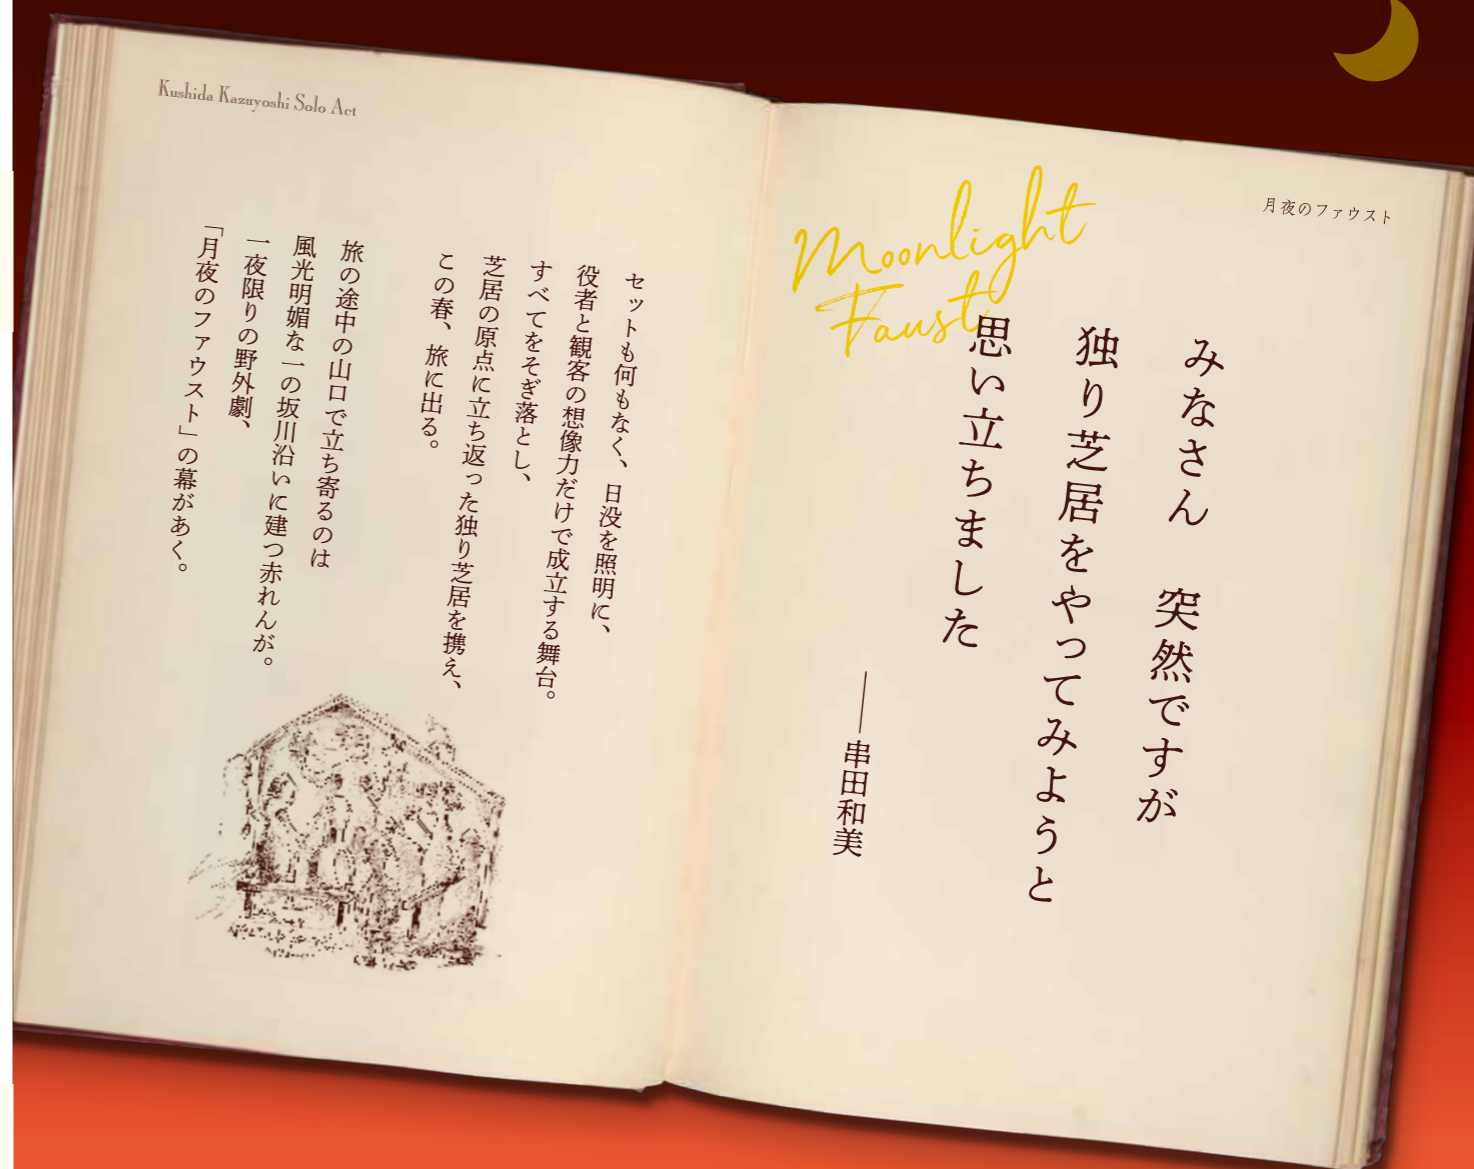 月夜のファウスト
Moonlight
Faust
みなさん　突然ですが
独り芝居をやってみようと
思い立ちました
――串田和美
Kushida Kazuyoshi Solo Act
セットも何もなく、日没を照明に、
役者と観客の想像力だけで成立する舞台。
すべてをそぎ落とし、
芝居の原点に立ち返った独り芝居を携え、
この春、旅に出る。
旅の途中の山口で立ち寄るのは
風光明媚な一の坂川沿いに建つ赤れんが。
一夜限りの野外劇、
「月夜のファウスト」の幕があく。